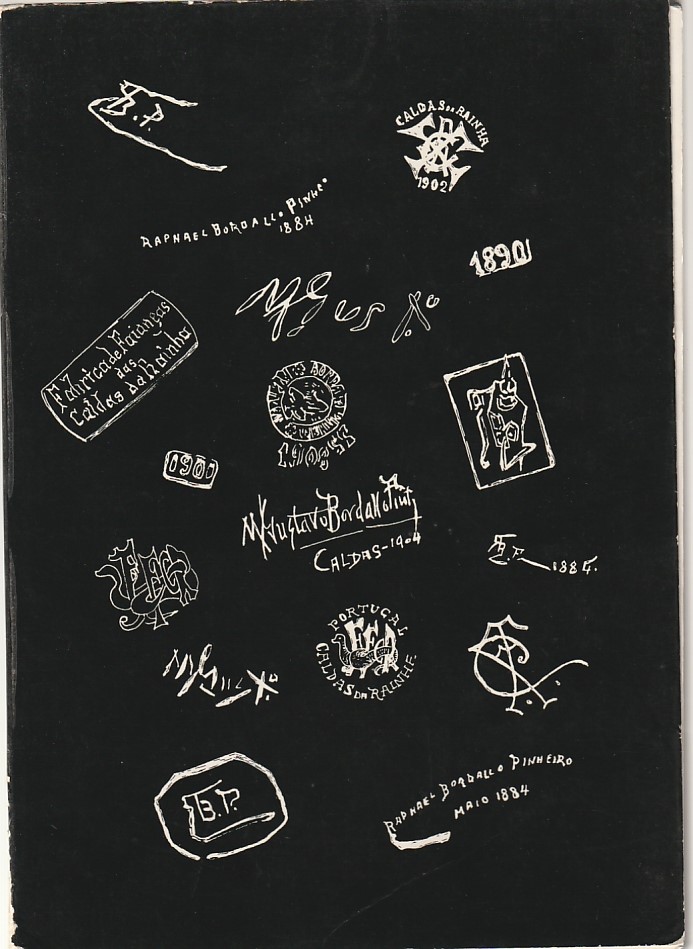 B.P.
CALDAS DA RAINHA
1902
RAPHAEL BORDALLO PINHEO
1884
1890
Fabrica de Faianças
das
Caldas da Rainha
1901
M Gustavo Bordallo Pinº
CALDAS-1904
B.P. 1884.
PORTUGAL
FFCR
CALDAS DA RAINHA
B.P.
RAPHAEL BORDALLO PINHEIRO
MAIO 1884